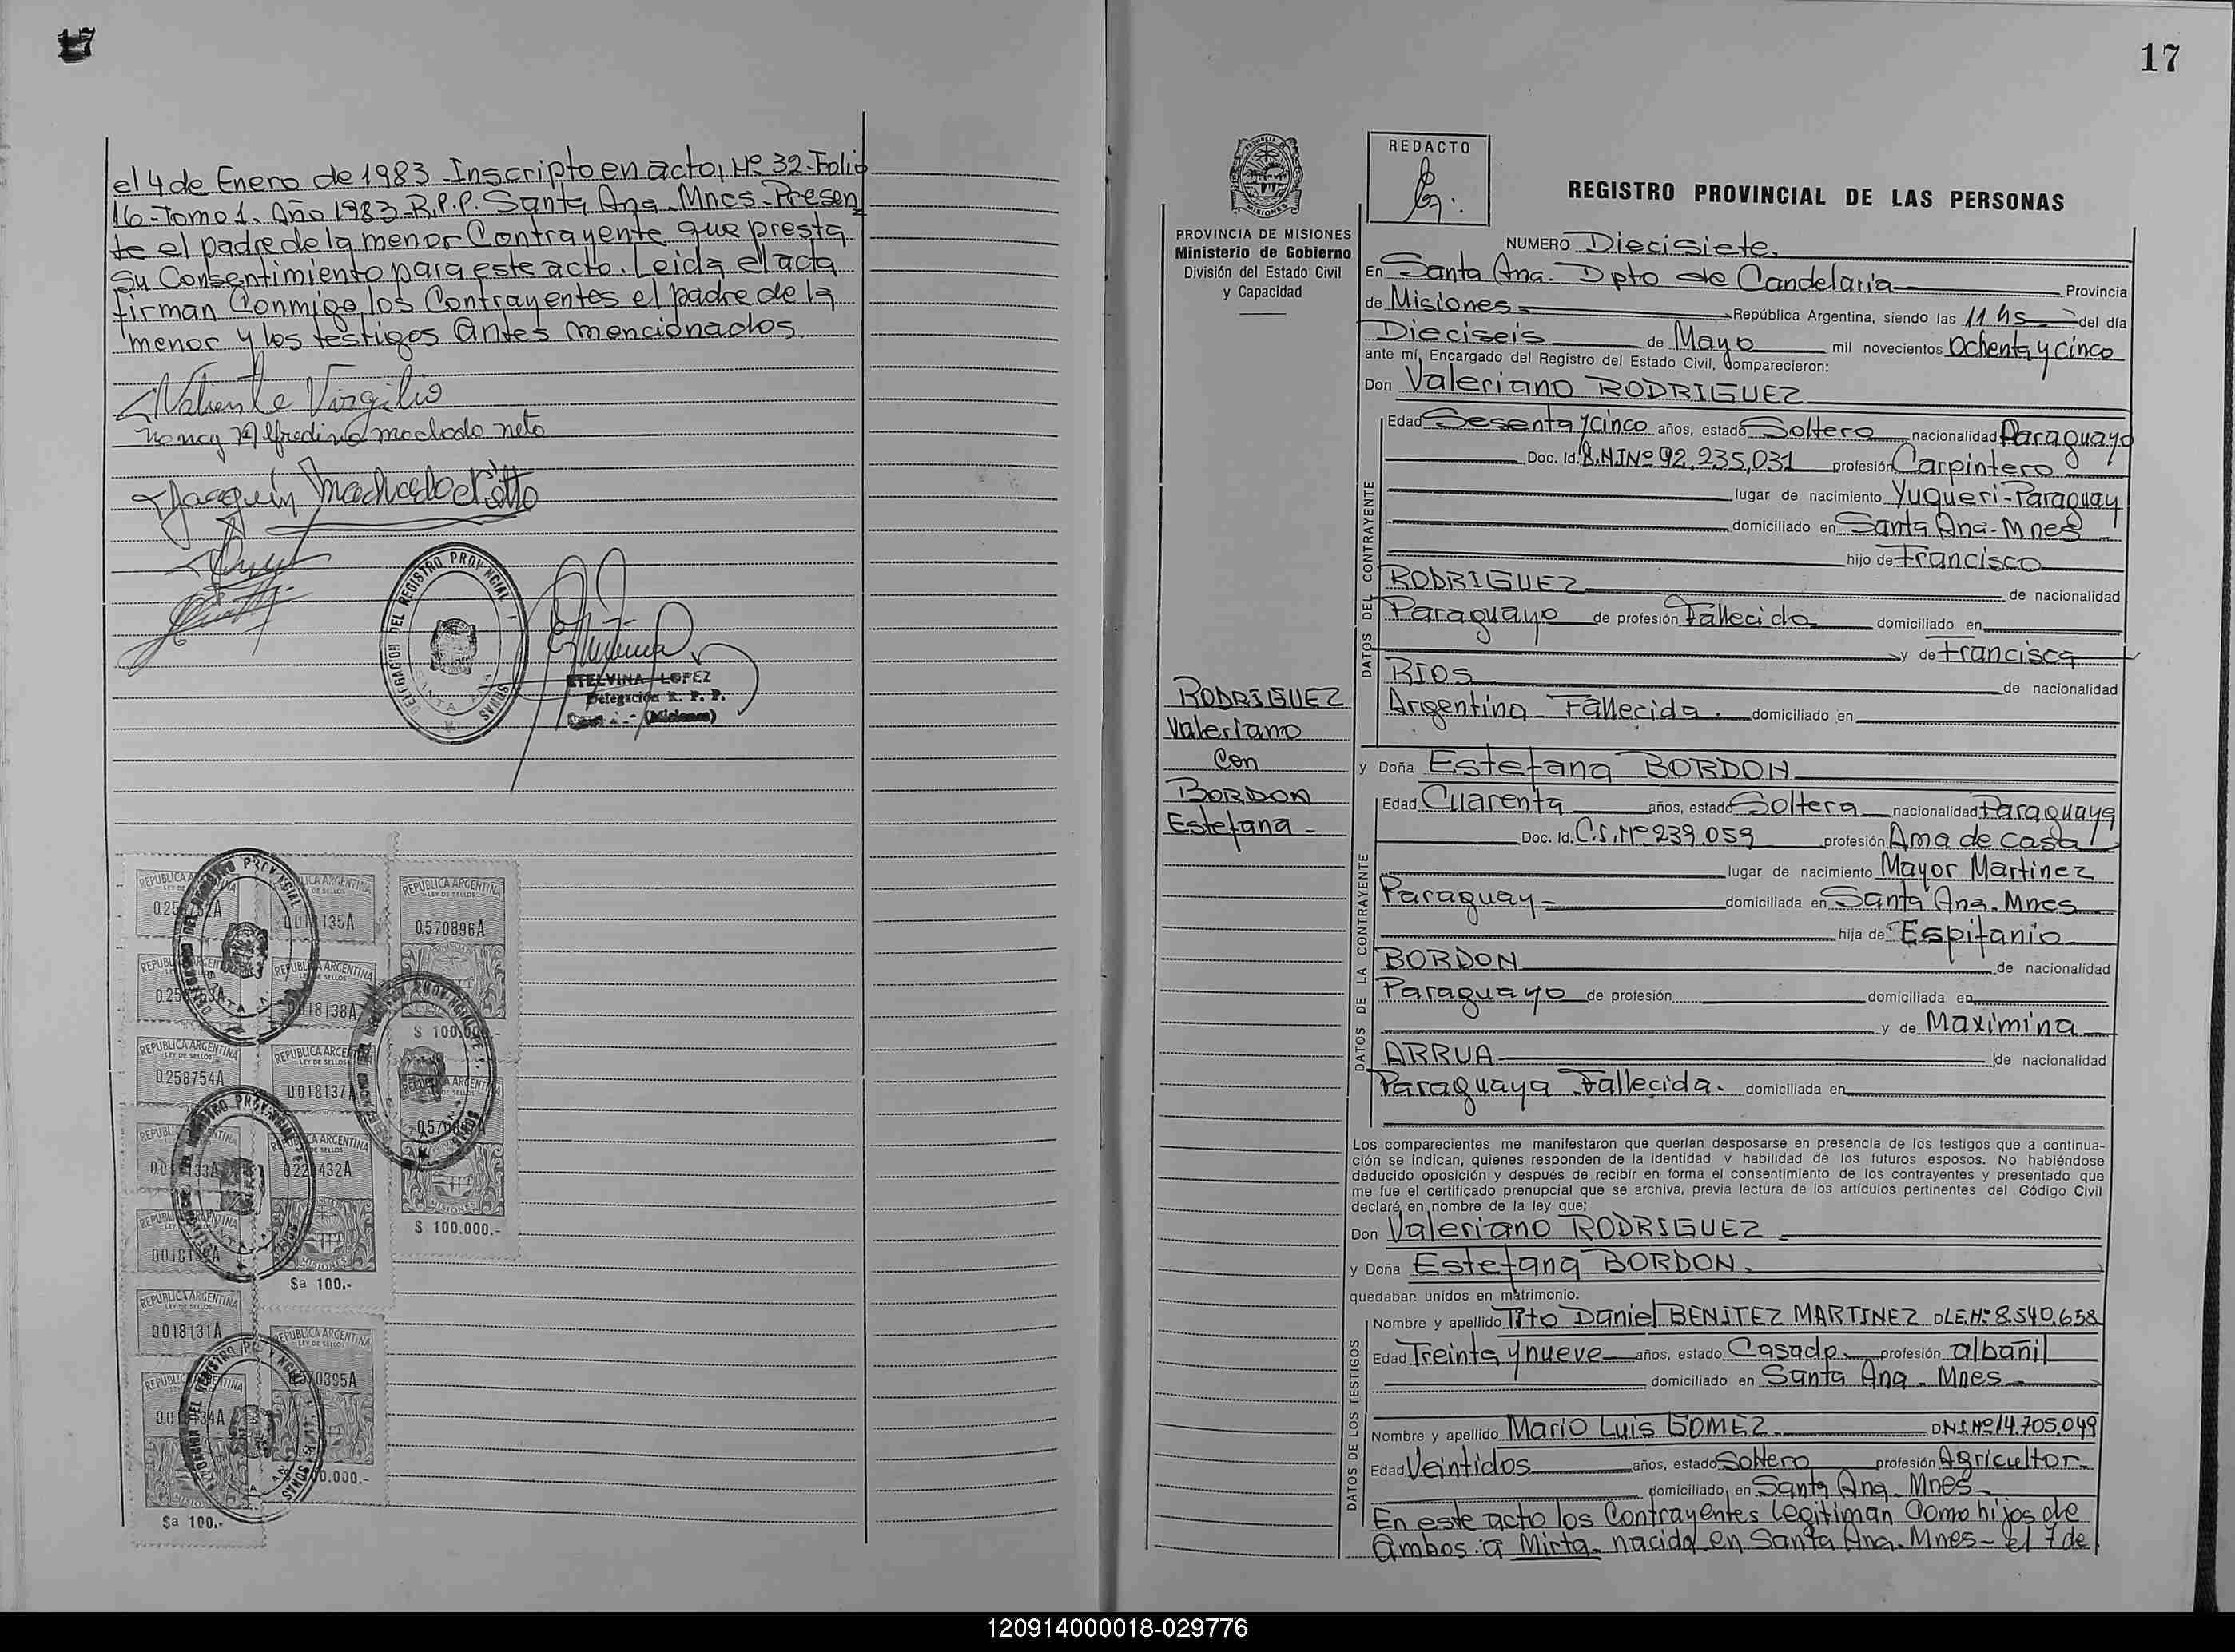 17
el 4 de Enero de 1983. Inscripto en acta, Nº 32-Folio
16-Tomo 1. Año 1983-R.P.P. Santa Ana. Mnes-Presen
te el padre de la menor Contrayente que presta
su Consentimiento para este acto. Leida el acta
firman Conmigo los Contrayentes el padre de la
menor y los testigos antes mencionados
Valiente Virgilio
Nancy Alfredina machado neto
Joaquin Machado
DELEGACION DEL REGISTRO PROVINCIAL
SANTA ANA
ETELVINA LOPEZ
Delegación R. P. P.
(Misiones)
REPUBLICA ARGENTINA
LEY DE SELLOS
0018135A
REPUBLICA ARGENTINA
LEY DE SELLOS
0.570896A
$ 100.000.-
REPUBLICA ARGENTINA
LEY DE SELLOS
0018138A
REPUBLICA ARGENTINA
LEY DE SELLOS
0.258754A
REPUBLICA ARGENTINA
LEY DE SELLOS
0018137A
$ 100.000.-
$a 100.-
REPUBLICA ARGENTINA
LEY DE SELLOS
0018131A
REPUBLICA ARGENTINA
LEY DE SELLOS
$a 100.-
17
PROVINCIA DE MISIONES
Ministerio de Gobierno
División del Estado Civil
y Capacidad
RODRIGUEZ
Valeriano
Con
BORDON
Estefana-
REDACTO
REGISTRO PROVINCIAL DE LAS PERSONAS
NUMERO Diecisiete.
En Santa Ana. Dpto de Candelaria Provincia
de Misiones República Argentina, siendo las 11 hs del día
Dieciseis de Mayo mil novecientos Ochenta y cinco
ante mí, Encargado del Registro del Estado Civil, comparecieron:
Don Valeriano RODRIGUEZ
DATOS DEL CONTRAYENTE
Edad Sesenta y cinco años, estado Soltero nacionalidad Paraguayo
Doc. Id. D.N.I Nº 92.235.031 profesión Carpintero
lugar de nacimiento Yuqueri-Paraguay
domiciliado en Santa Ana-Mnes
hijo de Francisco
RODRIGUEZ de nacionalidad
Paraguayo de profesión Fallecido domiciliado en
y de Francisca
RIOS de nacionalidad
Argentina Fallecida. domiciliado en
y Doña Estefana BORDON
DATOS DE LA CONTRAYENTE
Edad Cuarenta años, estado Soltera nacionalidad Paraguaya
Doc. Id. C.I. Nº 239.059 profesión Ama de casa
lugar de nacimiento Mayor Martinez
Paraguay- domiciliada en Santa Ana. Mnes
hija de Espifanio
BORDON de nacionalidad
Paraguayo de profesión domiciliada en
y de Maximina
ARRUA de nacionalidad
Paraguaya Fallecida. domiciliada en
Los comparecientes me manifestaron que querían desposarse en presencia de los testigos que a continua-
ción se indican, quienes responden de la identidad y habilidad de los futuros esposos. No habiéndose
deducido oposición y después de recibir en forma el consentimiento de los contrayentes y presentado que
me fue el certificado prenupcial que se archiva, previa lectura de los artículos pertinentes del Código Civil
declaré en nombre de la ley que;
Don Valeriano RODRIGUEZ
y Doña Estefana BORDON.
quedaban unidos en matrimonio.
DATOS DE LOS TESTIGOS
Nombre y apellido Tito Daniel BENITEZ MARTINEZ DLE.Nº 8.540.658
Edad Treinta y nueve años, estado Casado profesión albañil
domiciliado en Santa Ana. Mnes
Nombre y apellido Mario Luis GOMEZ DNI.Nº 14.705.049
Edad Veintidos años, estado Soltero profesión Agricultor
domiciliado en Santa Ana. Mnes
En este acto los Contrayentes legitiman Como hijos de
ambos. a Mirta. nacida en Santa Ana. Mnes- el 7 de
120914000018-029776